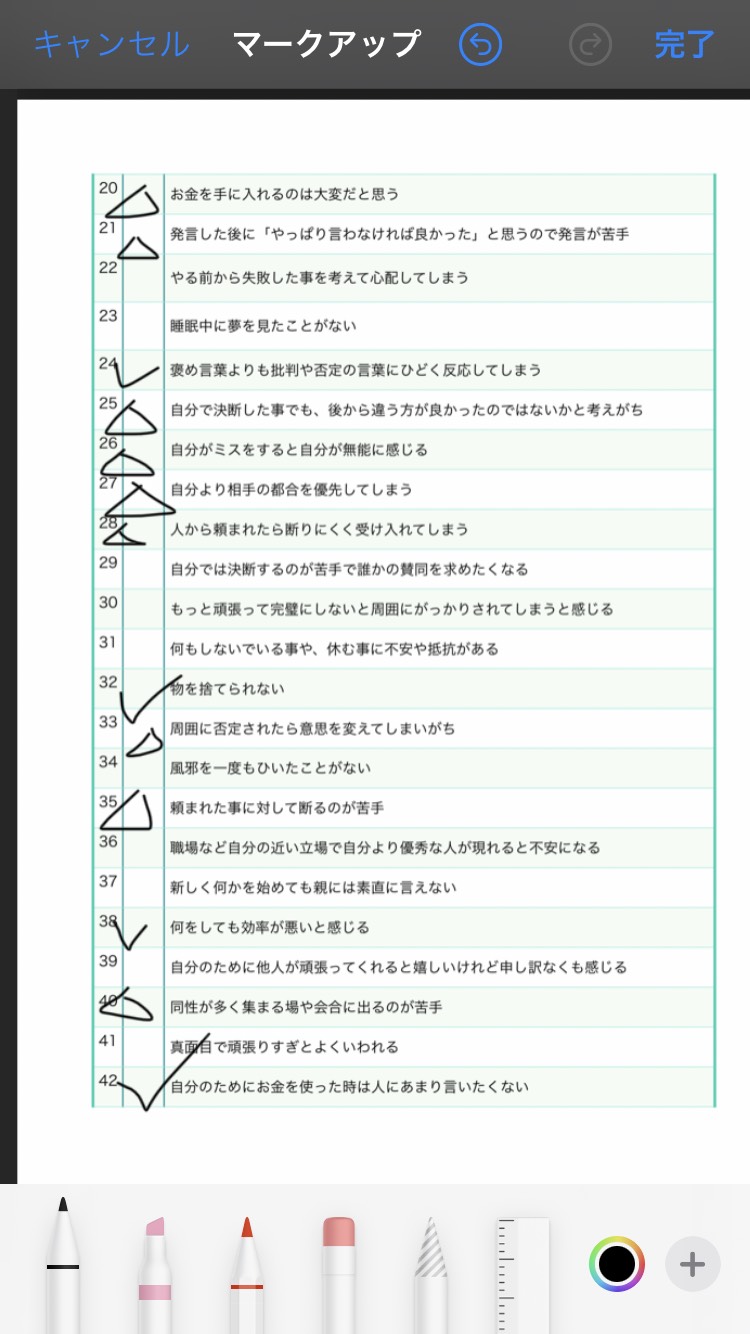 キャンセル マークアップ 完了
20 お金を手に入れるのは大変だと思う
21 発言した後に「やっぱり言わなければ良かった」と思うので発言が苦手
22 やる前から失敗した事を考えて心配してしまう
23 睡眠中に夢を見たことがない
24 褒め言葉よりも批判や否定の言葉にひどく反応してしまう
25 自分で決断した事でも、後から違う方が良かったのではないかと考えがち
26 自分がミスをすると自分が無能に感じる
27 自分より相手の都合を優先してしまう
28 人から頼まれたら断りにくく受け入れてしまう
29 自分では決断するのが苦手で誰かの賛同を求めたくなる
30 もっと頑張って完璧にしないと周囲にがっかりされてしまうと感じる
31 何もしないでいる事や、休む事に不安や抵抗がある
32 物を捨てられない
33 周囲に否定されたら意思を変えてしまいがち
34 風邪を一度もひいたことがない
35 頼まれた事に対して断るのが苦手
36 職場など自分の近い立場で自分より優秀な人が現れると不安になる
37 新しく何かを始めても親には素直に言えない
38 何をしても効率が悪いと感じる
39 自分のために他人が頑張ってくれると嬉しいけれど申し訳なくも感じる
40 同性が多く集まる場や会合に出るのが苦手
41 真面目で頑張りすぎとよくいわれる
42 自分のためにお金を使った時は人にあまり言いたくない